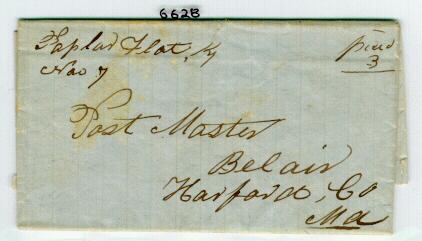 662B
Poplar Flat, Ky
Nov 7
paid
3
Post Master
Belair
Harford, Co
Md